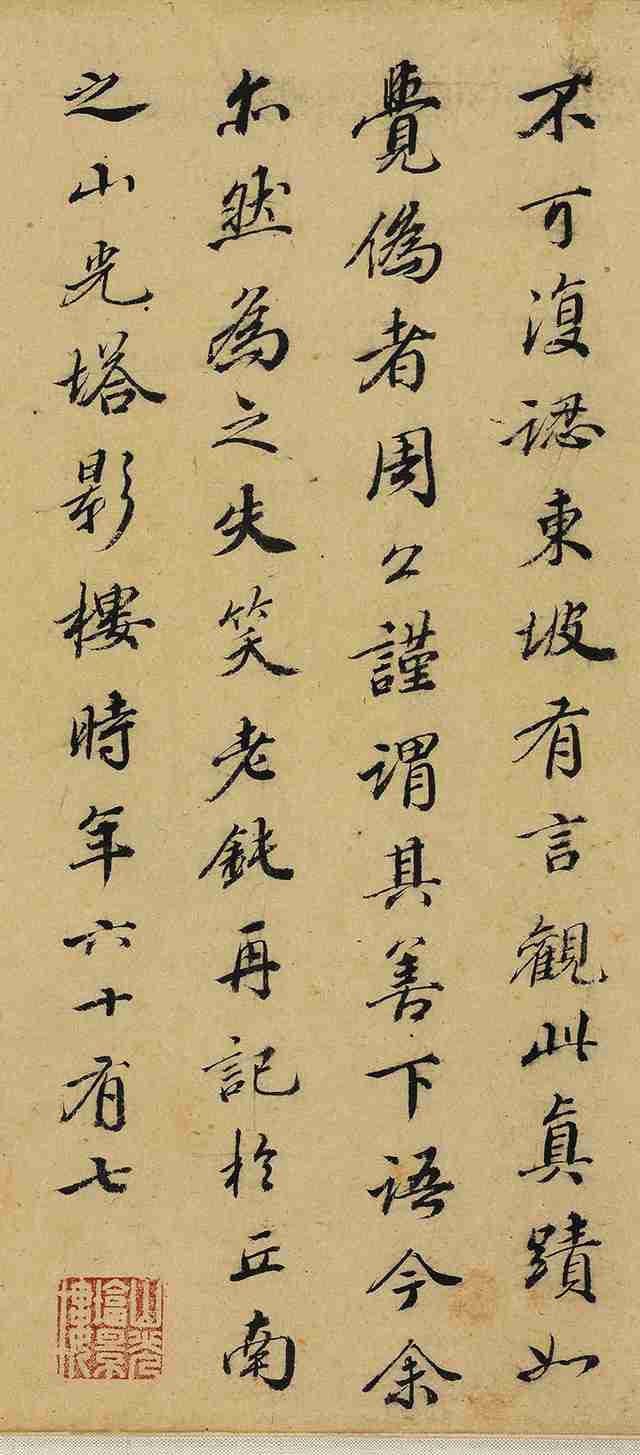 不可復認東坡有言觀此真蹟如
覺偽者周公謹謂其善下語今余
亦然為之失笑老鈍再記於丘南
之山光塔影樓時年六十有七
山光塔景樓